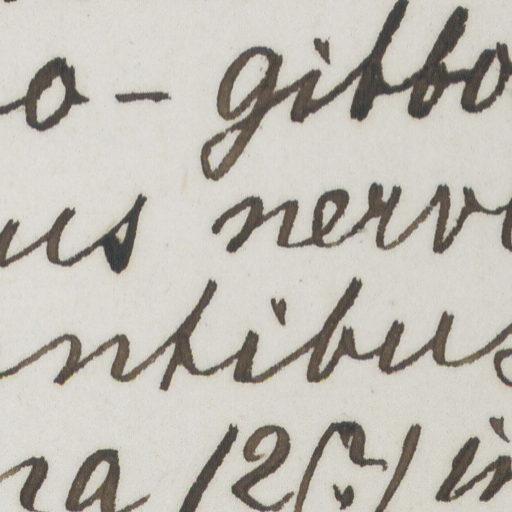 o - gibbo
us nerv
ntibus
ra 12(?) in